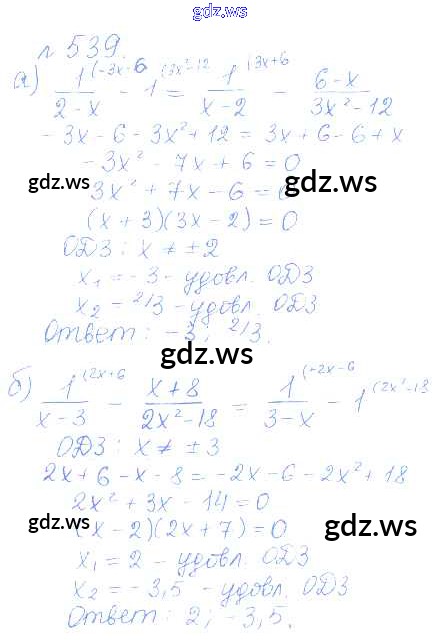 gdz.ru
№ 539.
а) 1^(-3x-6 / 2-x - 1^(3x²-12 = 1^(3x+6 / x-2 - 6-x / 3x²-12
-3x-6-3x²+12 = 3x+6-6+x
-3x²-7x+6=0
gdz.ru gdz.ru
3x²+7x-6=0
(x+3)(3x-2)=0
ОДЗ: x ≠ ±2
x₁=-3 - удовл. ОДЗ
x₂=2/3 - удовл. ОДЗ
Ответ: -3; 2/3.
gdz.ru
б) 1^(2x+6 / x-3 - x+8 / 2x²-18 = 1^(-2x-6 / 3-x - 1^(2x²-18
ОДЗ: x ≠ ±3
2x+6-x-8=-2x-6-2x²+18
2x²+3x-14=0
gdz.ru gdz.ru
(x-2)(2x+7)=0
x₁=2 - удовл. ОДЗ
x₂=-3,5 - удовл. ОДЗ
Ответ: 2; -3,5.
gdz.ru